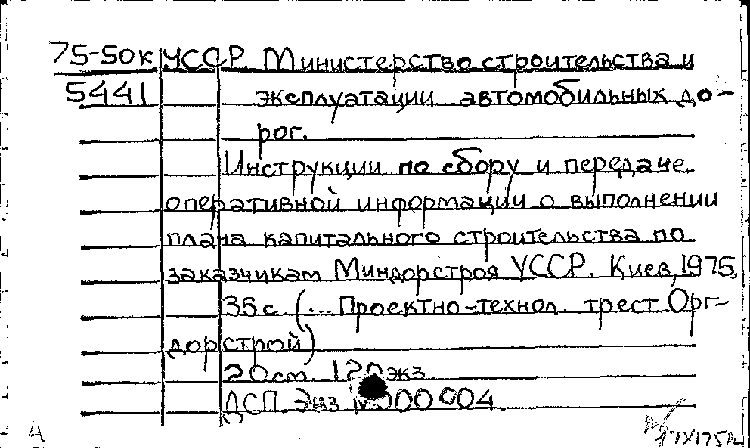 75-50к УССР. Министерство строительства и
5441 эксплуатации автомобильных до-
рог.
Инструкции по сбору и передаче
оперативной информации о выполнении
плана капитального строительства по
заказчикам Миндорстроя УССР. Киев, 1975.
35 с. (... Проектно-технол. трест Орг-
дорстрой)
20 см. 120 экз.
ДСП. Экз. №000004.